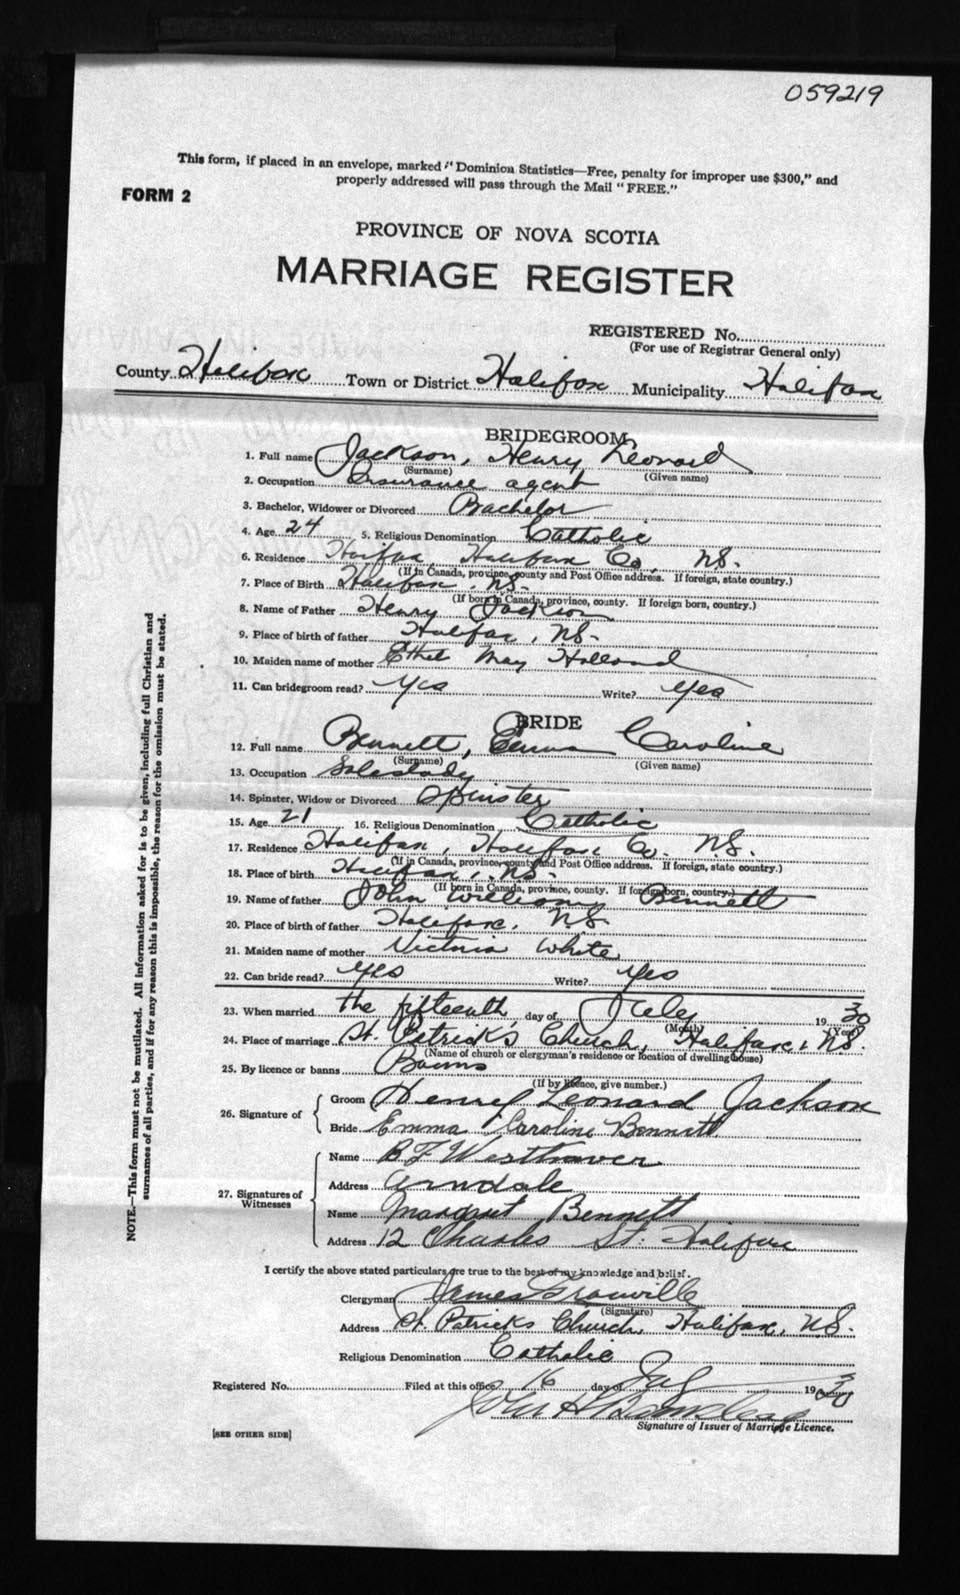 059219
This form, if placed in an envelope, marked "Dominion Statistics—Free, penalty for improper use $300," and
properly addressed will pass through the Mail "FREE."
FORM 2
PROVINCE OF NOVA SCOTIA
MARRIAGE REGISTER
REGISTERED No.
(For use of Registrar General only)
County Halifax Town or District Halifax Municipality Halifax
BRIDEGROOM
1. Full name Jackson, Henry Leonard
(Surname) (Given name)
2. Occupation Insurance agent
3. Bachelor, Widower or Divorced Bachelor
4. Age 24 5. Religious Denomination Catholic
6. Residence Halifax Halifax Co. NS.
(If in Canada, province, county and Post Office address. If foreign, state country.)
7. Place of Birth Halifax, NS.
(If born in Canada, province, county. If foreign born, country.)
8. Name of Father Henry Jackson
9. Place of birth of father Halifax, NS.
10. Maiden name of mother Ethel May Holland
11. Can bridegroom read? Yes Write? Yes
BRIDE
12. Full name Bennett, Emma Caroline
(Surname) (Given name)
13. Occupation Saleslady
14. Spinster, Widow or Divorced Spinster
15. Age 21 16. Religious Denomination Catholic
17. Residence Halifax, Halifax Co. NS.
(If in Canada, province, county and Post Office address. If foreign, state country.)
18. Place of birth Halifax, NS.
(If born in Canada, province, county. If foreign born, country.)
19. Name of father John Williams Bennett
20. Place of birth of father Halifax, NS.
21. Maiden name of mother Victoria White
22. Can bride read? Yes Write? Yes
23. When married the fifteenth day of July 1930
(Month) (Year)
24. Place of marriage St. Patrick's Church, Halifax, NS.
(Name of church or clergyman's residence or location of dwelling house)
25. By licence or banns Banns
(If by licence, give number.)
26. Signature of Groom Henry Leonard Jackson
Bride Emma Caroline Bennett
27. Signatures of Witnesses Name B F Westhaver
Address Armdale
Name Margaret Bennett
Address 12 Charles St. Halifax
I certify the above stated particulars are true to the best of my knowledge and belief.
Clergyman James Granville
(Signature)
Address St. Patricks Church, Halifax, NS.
Religious Denomination Catholic
Registered No. Filed at this office 16 day of July 1930
John H
Signature of Issuer of Marriage Licence.
[SEE OTHER SIDE]
NOTE.—This form must not be mutilated. All information asked for is to be given, including full Christian and
surnames of all parties, and if for any reason this is impossible, the reason for the omission must be stated.